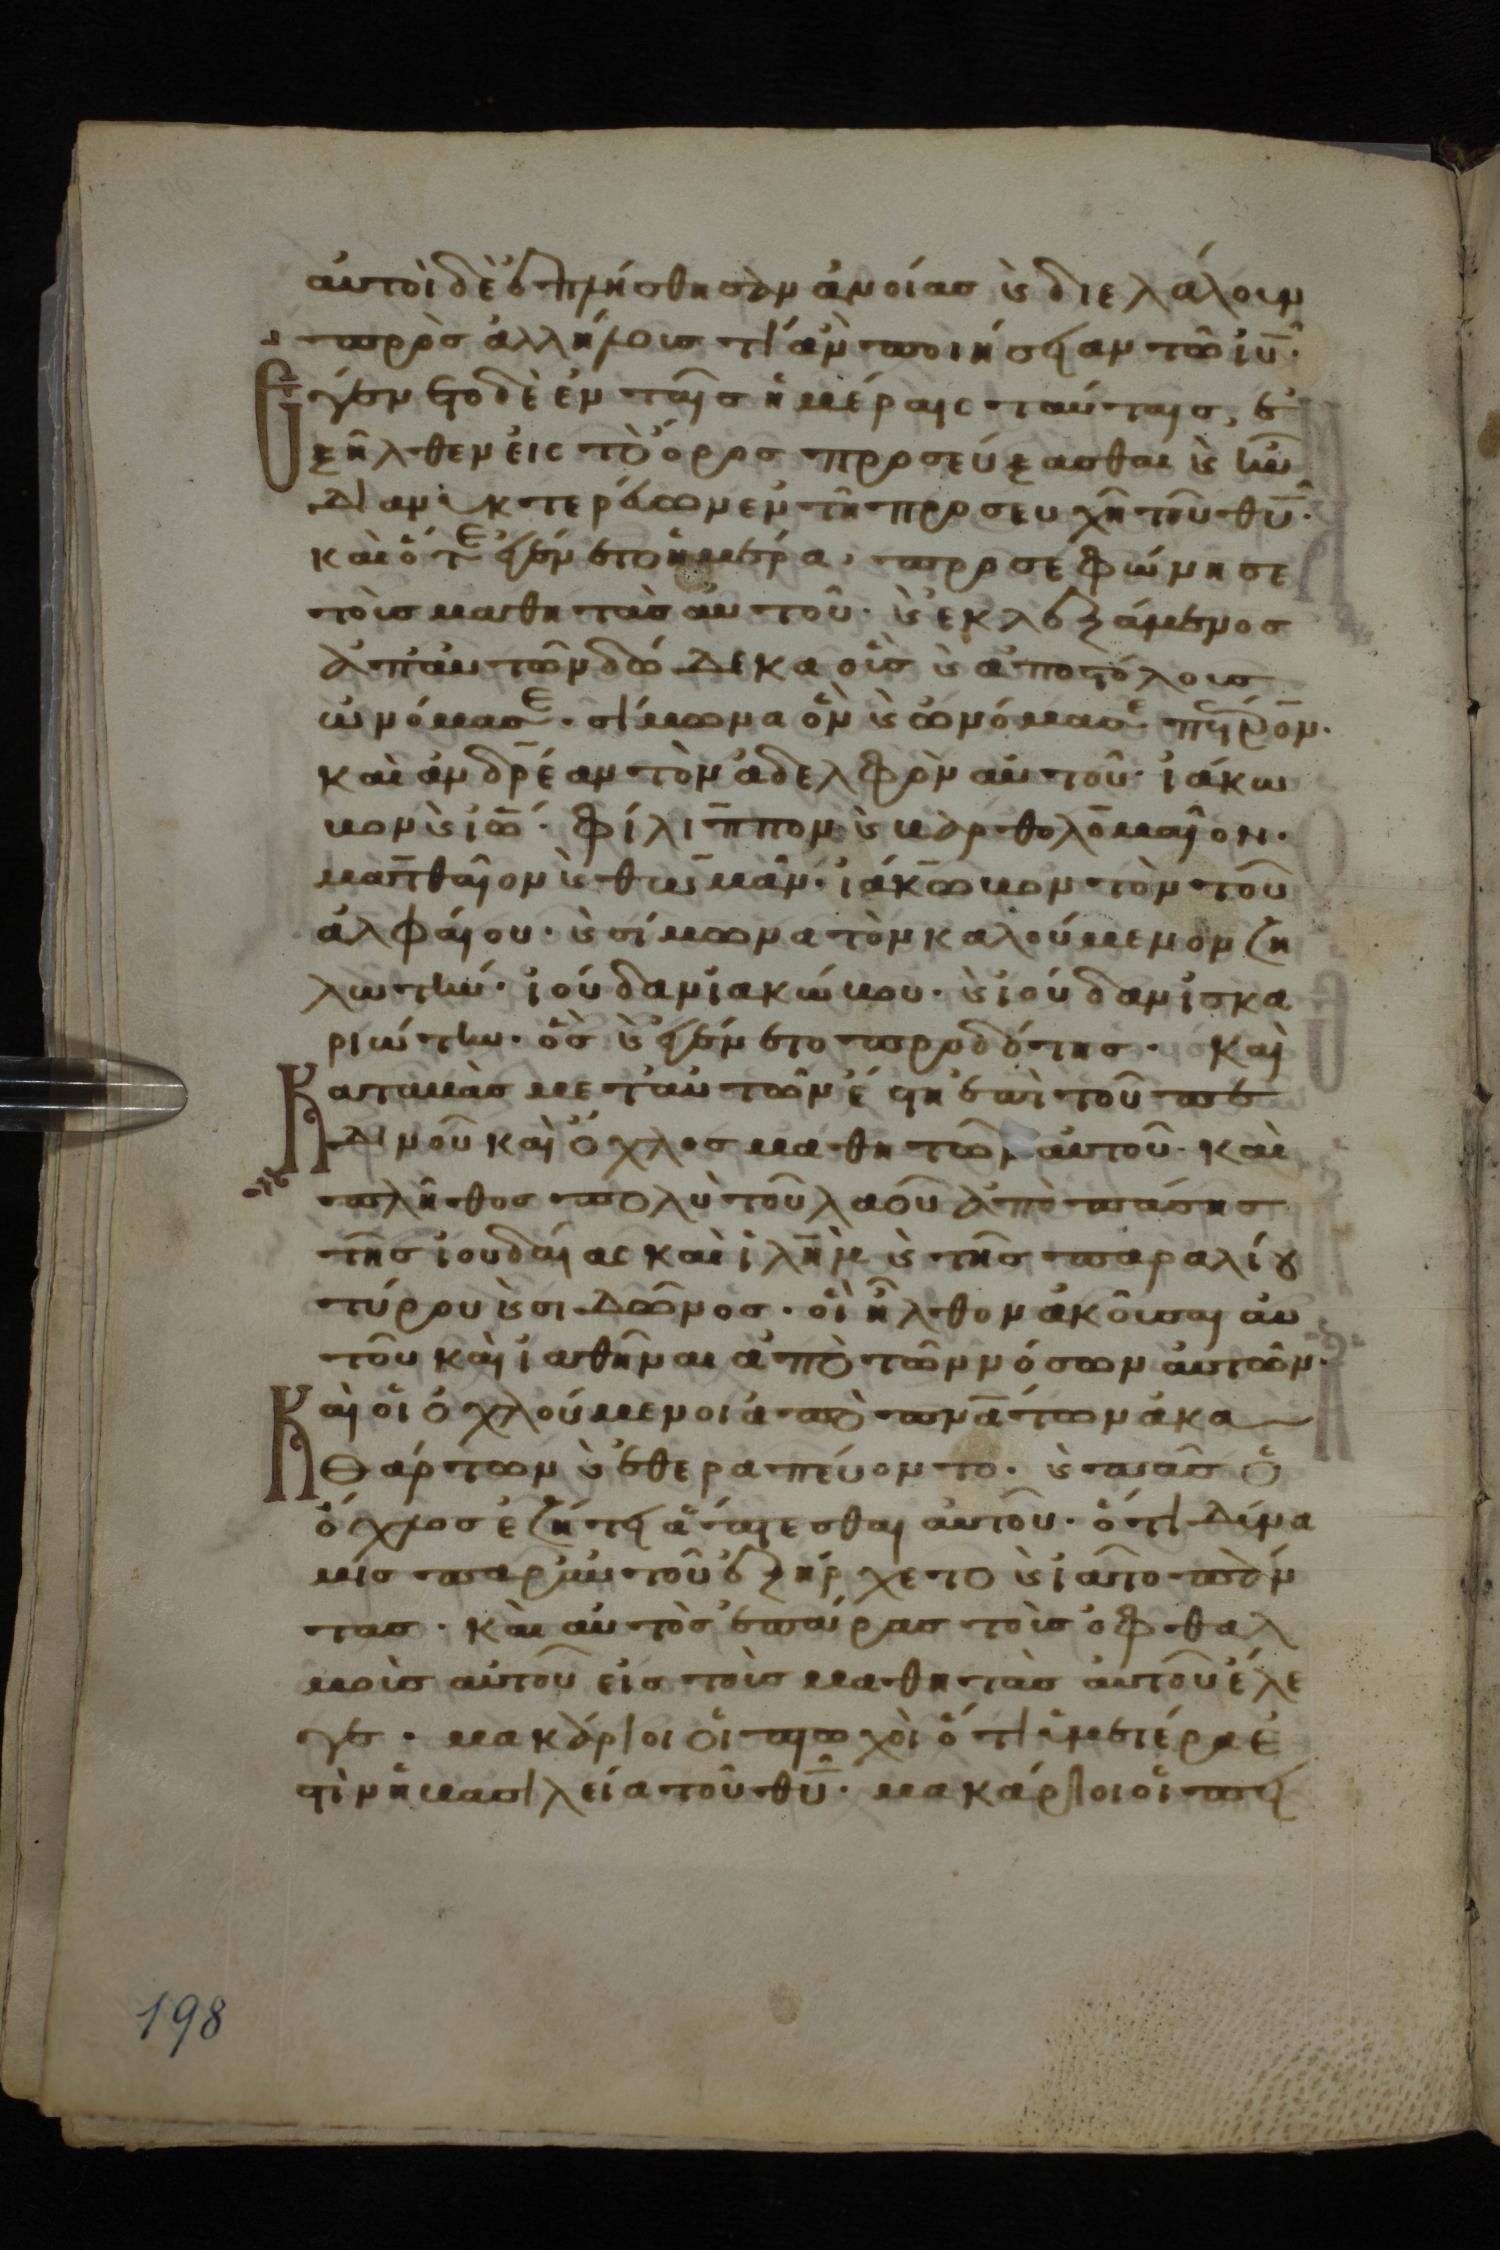 αὐτοὶ δὲ ἐπλήσθησαν ἀνοίας καὶ διελάλουν
πρὸς ἀλλήλους τί ἂν ποιήσειαν τῶ ἰῦ.
Ἐγένετο δὲ ἐν ταῖς ἡμέραις ταύταις, ἐ
ξῆλθεν εἰς τὸ ὄρος προσεύξασθαι καὶ ἦν
διανυκτερεύων ἐν τῆ προσευχῆ τοῦ θῦ.
καὶ ὅτε ἐγένετο ἡμέρα, προσεφώνησε
τοὺς μαθητὰς αὐτοῦ. καὶ ἐκλεξάμενος
ἀπ' αὐτῶν δώδεκα οὓς καὶ ἀποστόλους
ὠνόμασε. σίμωνα ὃν καὶ ὠνόμασε πέτρον.
καὶ ἀνδρέαν τὸν ἀδελφὸν αὐτοῦ. ἰάκω
βον καὶ ἰω. φίλιππον καὶ βαρθολομαῖον.
ματθαῖον καὶ θωμᾶν. ἰάκωβον τὸν τοῦ
ἀλφαίου. καὶ σίμωνα τὸν καλούμενον ζη
λωτήν. ἰούδαν ἰακώβου. καὶ ἰούδαν ἰσκα
ριώτην. ὃς καὶ ἐγένετο προδότης. Καὶ
Καταβὰς μετ' αὐτῶν ἔστη ἐπὶ τοῦ πε
δινοῦ καὶ ὄχλος μαθητῶν αὐτοῦ. καὶ
πλῆθος πολὺ τοῦ λαοῦ ἀπὸ πάσης
τῆς ἰουδαίας καὶ ἰλὴμ καὶ τῆς παραλίου
τύρου καὶ σιδῶνος. οἳ ἦλθον ἀκοῦσαι αὐ
τοῦ καὶ ἰαθῆναι ἀπὸ τῶν νόσων αὐτῶν.
Καὶ οἱ ὀχλούμενοι ἀπὸ πνάτων ἀκα
θάρτων καὶ ἐθεραπεύοντο. καὶ πᾶς ὁ
ὄχλος ἐζήτει ἅπτεσθαι αὐτοῦ. ὅτι δύνα
μις παρ' αὐτοῦ ἐξήρχετο καὶ ἰᾶτο πάν
τας. καὶ αὐτὸς ἐπάρας τοὺς ὀφθαλ
μοὺς αὐτοῦ εἰς τοὺς μαθητὰς αὐτοῦ ἔλε
γε. μακάριοι οἱ πτωχοὶ ὅτι ὑμετέρα ἐ
στὶν ἡ βασιλεία τοῦ θῦ. μακάριοι οἱ πει
198